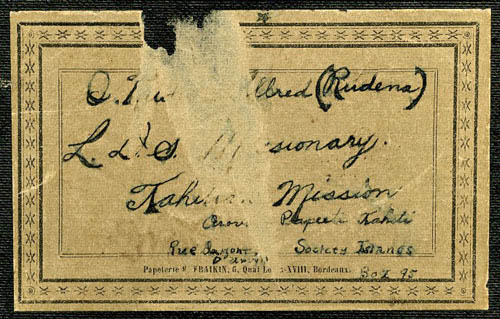 Alfred (Rudena)
L. d. S. Missionary.
Tahitian Mission
Papeete Tahiti
Rue Society Islands
Papeterie FRAIKIN, 6, Quai Lo XVIII, Bordeaux. Box 95